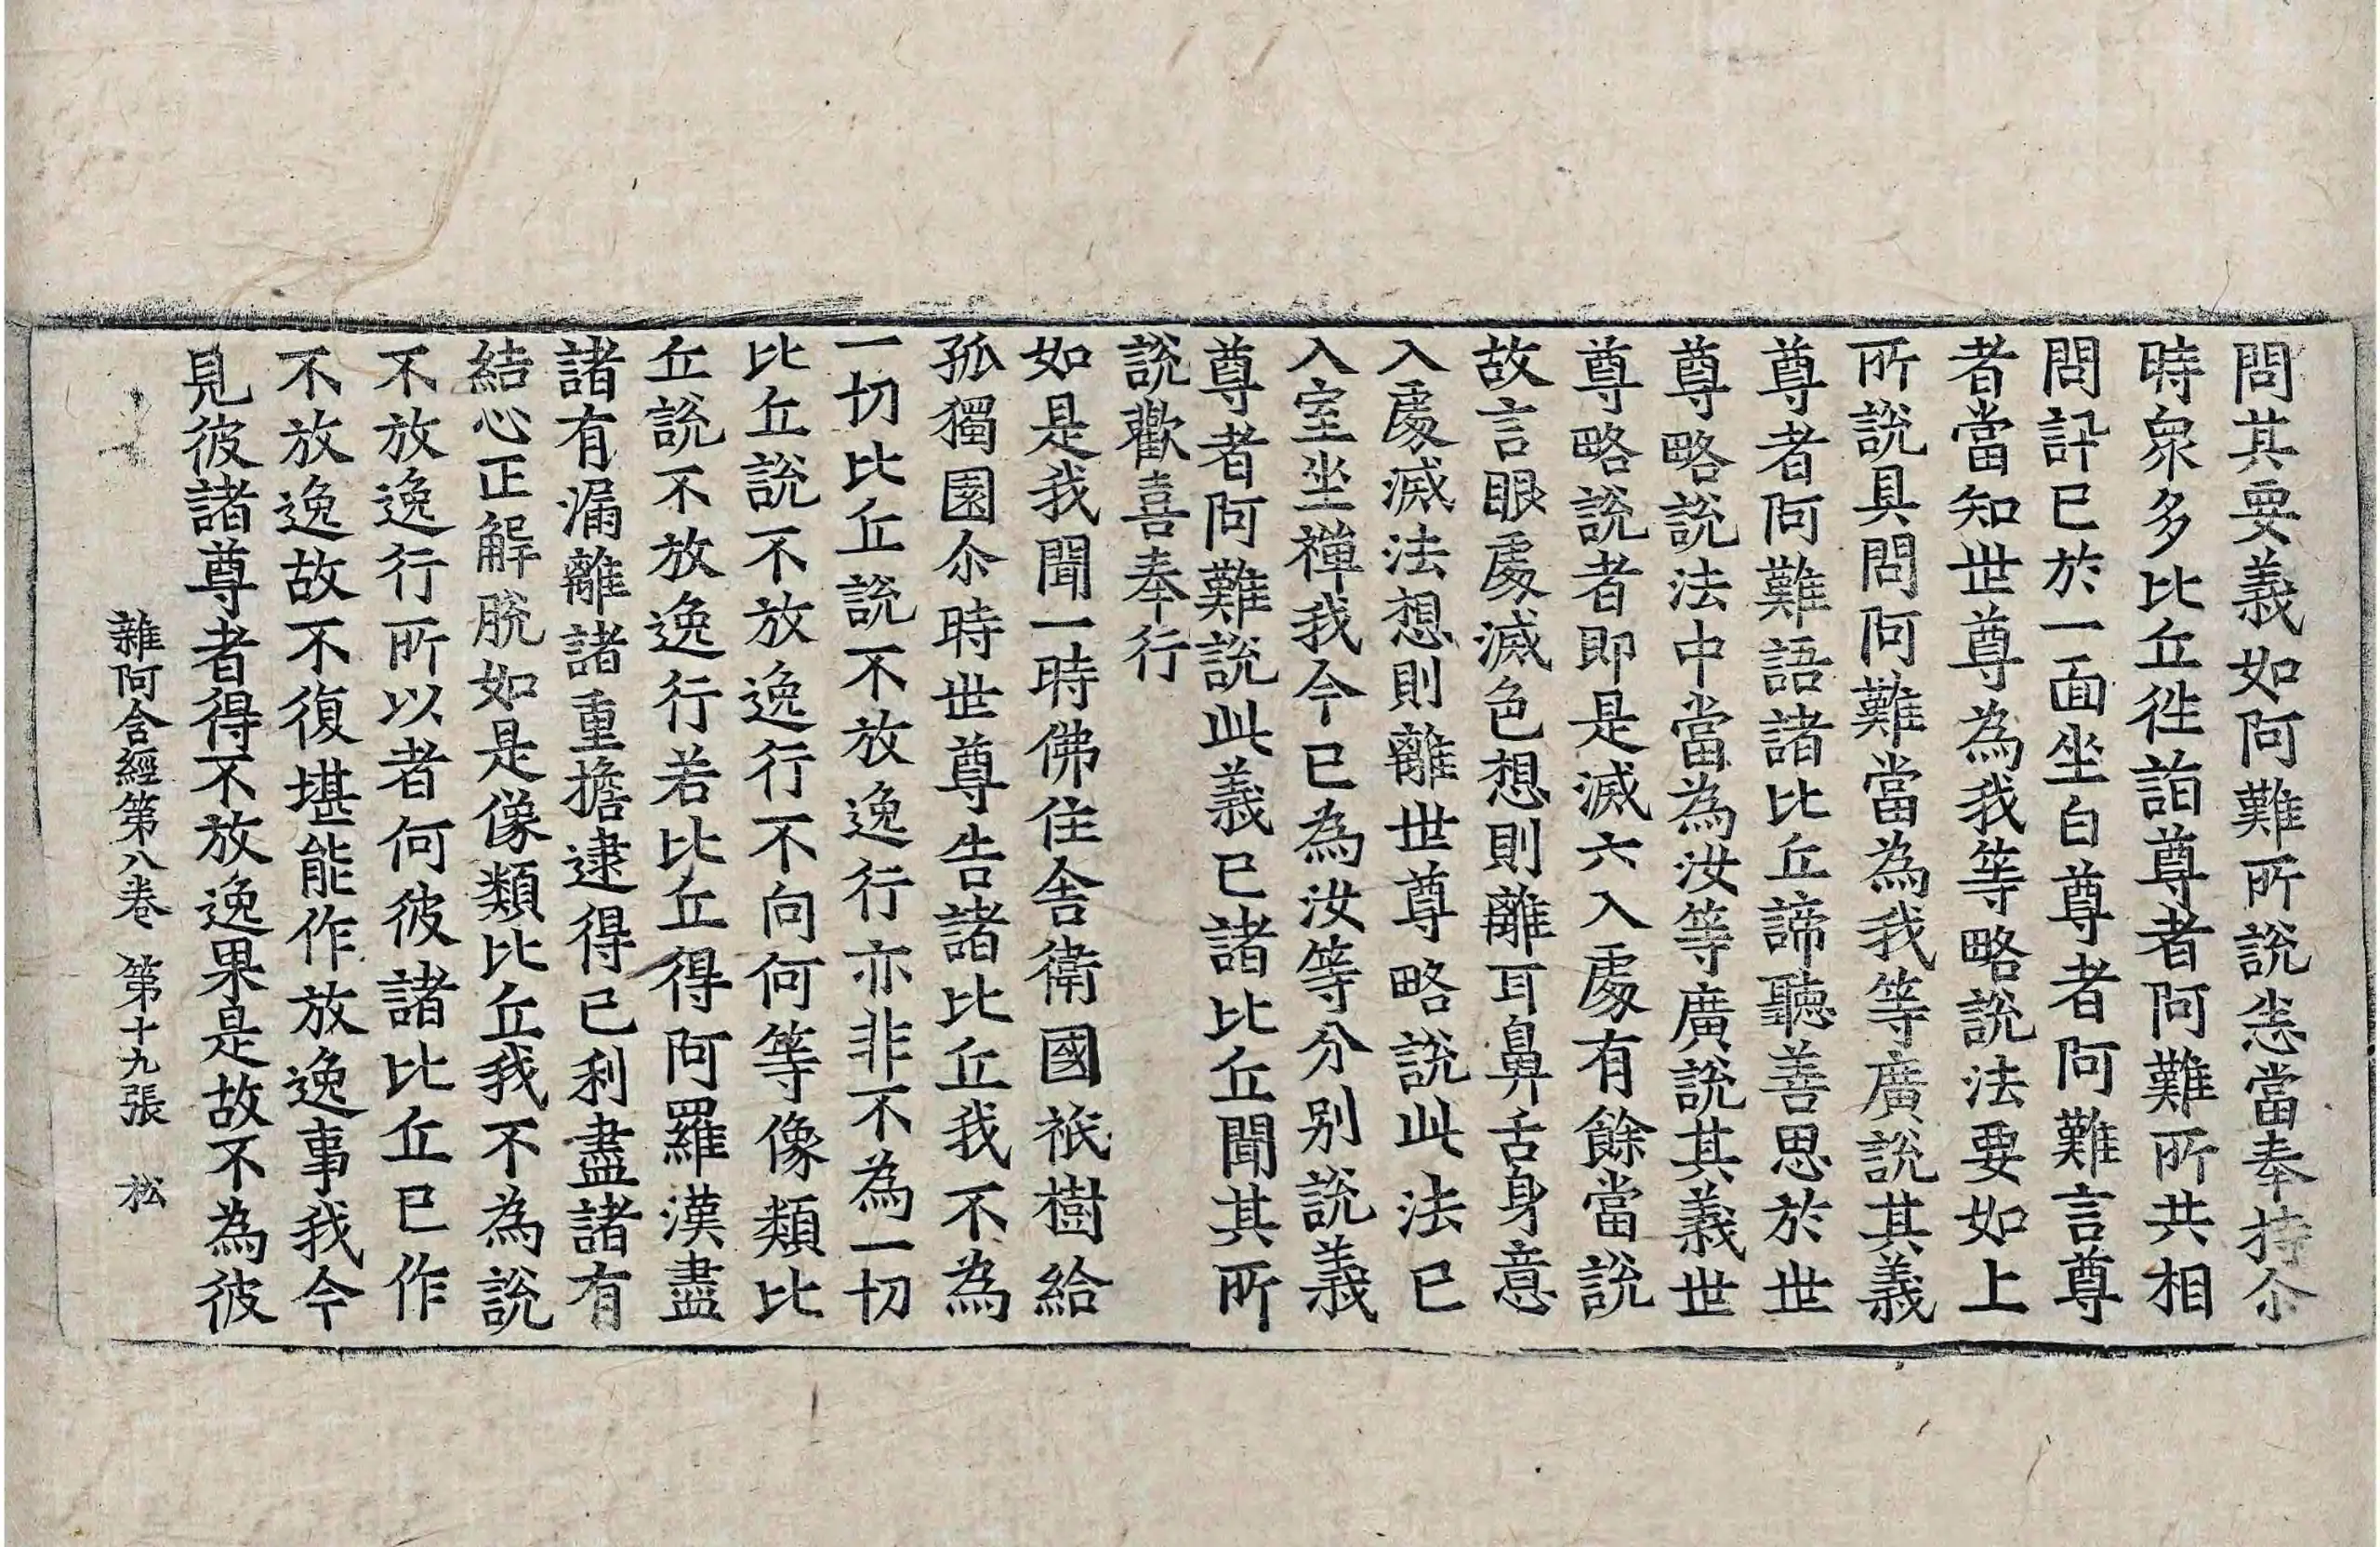 問其要義如阿難所說悉當奉持尒
時衆多比丘徃詣尊者阿難所共相
問訊已於一面坐白尊者阿難言尊
者當知世尊為我等略說法要如上
所說具問阿難當為我等廣說其義
尊者阿難語諸比丘諦聽善思於世
尊略說法中當為汝等廣說其義世
尊略說者即是滅六入處有餘當說
故言眼處滅色想則離耳鼻舌身意
入處滅法想則離世尊略說此法已
入室坐禪我今已為汝等分别說義
尊者阿難說此義已諸比丘聞其所
說歡喜奉行
如是我聞一時佛住舍衛國祇樹給
孤獨園尒時世尊告諸比丘我不為
一切比丘說不放逸行亦非不為一切
比丘說不放逸行不向何等像類比
丘說不放逸行若比丘得阿羅漢盡
諸有漏離諸重擔逮得己利盡諸有
結心正解脫如是像類比丘我不為說
不放逸行所以者何彼諸比丘已作
不放逸故不復堪能作放逸事我今
見彼諸尊者得不放逸果是故不為彼
雜阿含經第八卷 第十九張 松